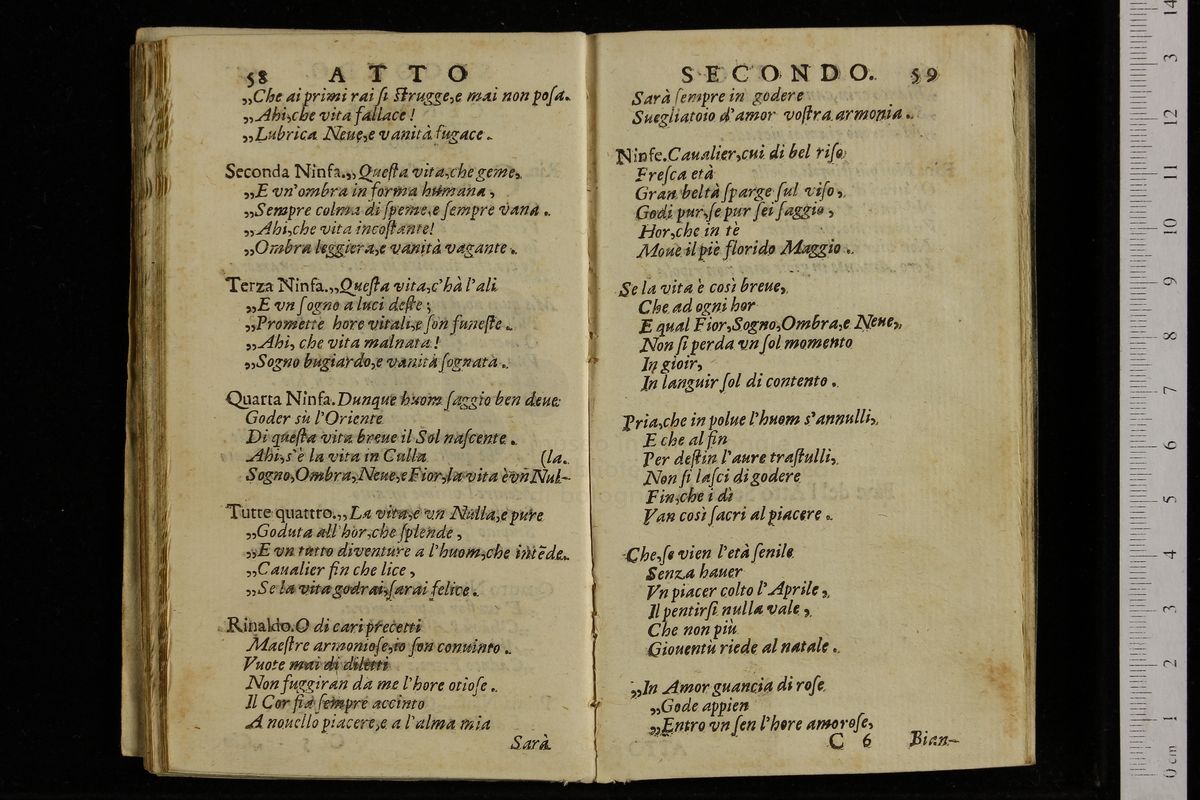 58 ATTO
„Che ai primi rai ſi ſtrugge,e mai non poſa.
„Ahi,che vita fallace!
„Lubrica Neue,e vanità fugace.
Seconda Ninfa.„Queſta vita,che geme,
„E vn'ombra in forma humana,
„Sempre colma di ſpeme,e ſempre vana.
„Ahi,che vita incoſtante!
„Ombra leggiera,e vanità vagante.
Terza Ninfa.„Queſta vita,c'hà l'ali
„E vn ſogno a luci deſte;
„Promette hore vitali,e ſon funeſte.
„Ahi, che vita malnata!
„Sogno bugiardo,e vanità ſognata.
Quarta Ninfa.Dunque huom ſaggio ben deue
Goder sù l'Oriente
Di queſta vita breue il Sol naſcente.
Ahi,s'è la vita in Culla (la.
Sogno,Ombra,Neue,e Fior,la vita è vn Nul-
Tutte quattro.„La vita,e vn Nulla,e pure
„Goduta all'hor,che ſplende,
„E vn tutto diventure a l'huom,che intẽde.
„Caualier fin che lice,
„Se la vita godrai,ſarai felice.
Rinaldo.O di cari precetti
Maeſtre armonioſe,io ſon conuinto.
Vuote mai di diletti
Non fuggiran da me l'hore otioſe.
Il Cor fia ſempre accinto
A nouello piacere,e a l'alma mia
Sarà
SECONDO. 59
Sarà ſempre in godere
Suegliatoio d'amor voſtra armonia.
Ninfe.Caualier,cui di bel riſo
Freſca età
Gran beltà ſparge ſul viſo,
Godi pur,ſe pur ſei ſaggio,
Hor,che in tè
Moue il piè florido Maggio.
Se la vita è così breue,
Che ad ogni hor
E qual Fior,Sogno,Ombra,e Neue,
Non ſi perda vn ſol momento
In gioir,
In languir ſol di contento.
Pria,che in polue l'huom s'annulli,
E che al fin
Per deſtin l'aure traſtulli,
Non ſi laſci di godere
Fin,che i dì
Van così ſacri al piacere.
Che,ſe vien l'età ſenile
Senza hauer
Vn piacer colto l'Aprile,
Il pentirſi nulla vale,
Che non più
Giouentù riede al natale.
„In Amor guancia di roſe
„Gode appien
„Entro vn ſen l'hore amoroſe,
C 6 Bian-